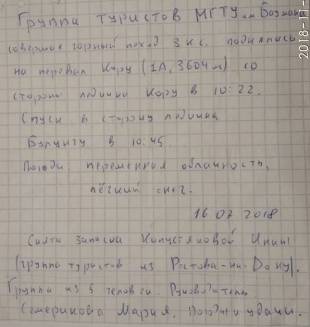 Группа туристов МГТУ им Баумана
совершая горный поход 3 к.с. поднялась
на перевал Кору (1А, 3604 м) со
стороны ледника Кору в 10:22.
Спуск в сторону ледника
в 10:45
Погода переменная облачность,
лёгкий снег.
16 07 2018
Сняли записку Капустяновой Инны
(группа туристов из Ростова-на-Дону).
Группа из 5 человек Руководитель
Мария. Погоды и удачи.
2018-11-